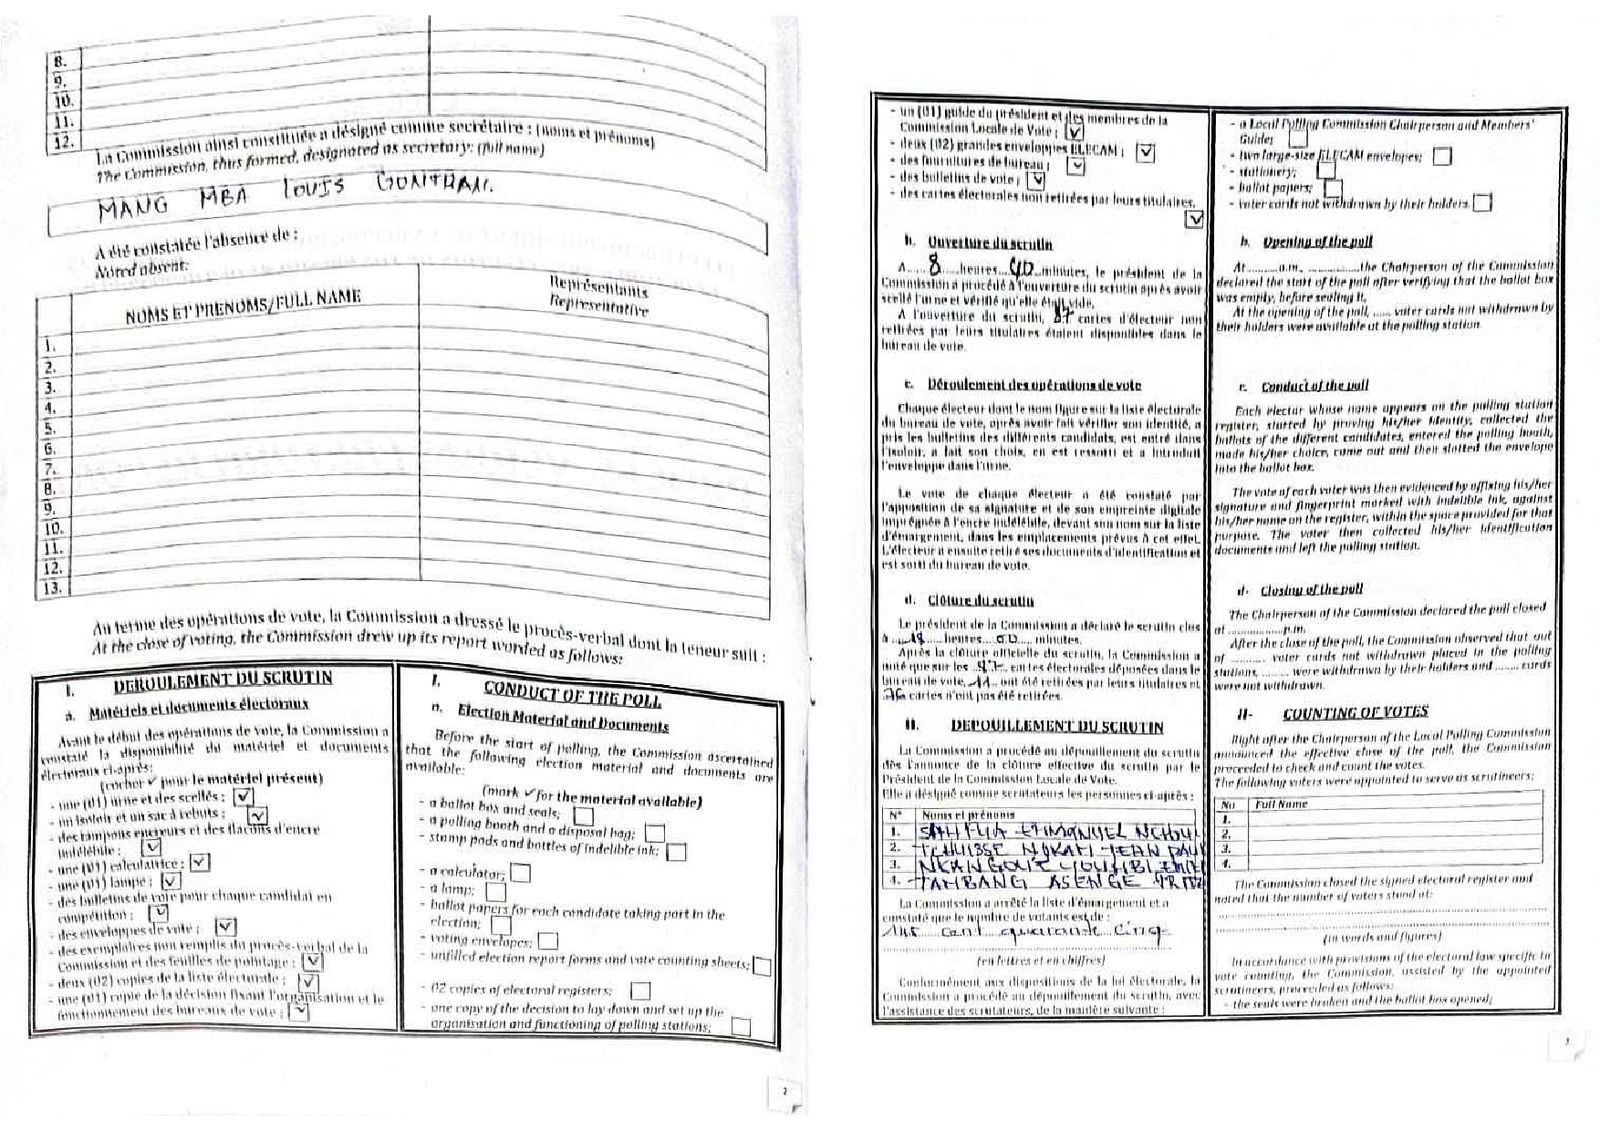 8.
9.
10.
11.
12.
La Commission ainsi constituée a désigné comme secrétaire : (noms et prénoms)
The Commission, thus formed, designated as secretary: (full name)
MANG MBA LOUIS GONTRAN.
A été constatée l'absence de :
Noted absent:
NOMS ET PRENOMS/FULL NAME
Représentants
Representative
1.
2.
3.
4.
5.
6.
7.
8.
9.
10.
11.
12.
13.
Au terme des opérations de vote, la Commission a dressé le procès-verbal dont la teneur suit :
At the close of voting, the Commission drew up its report worded as follows:
I. DEROULEMENT DU SCRUTIN
a. Matériels et documents électoraux
Avant le début des opérations de vote, la Commission a
constaté la disponibilité du matériel et documents
électoraux ci-après:
(cocher ✓ pour le matériel présent)
- une (01) urne et des scellés : ✓
- un isoloir et un sac à rebuts : ✓
- des tampons encreurs et des flacons d'encre
indélébile : ✓
- une (01) calculatrice : ✓
- une (01) lampe : ✓
- des bulletins de vote pour chaque candidat en
compétition : ✓
- des enveloppes de vote : ✓
- des exemplaires non remplis du procès-verbal de la
Commission et des feuilles de pointage : ✓
- deux (02) copies de la liste électorale : ✓
- une (01) copie de la décision fixant l'organisation et le
fonctionnement des bureaux de vote : ✓
I. CONDUCT OF THE POLL
a. Election Material and Documents
Before the start of polling, the Commission ascertained
that the following election material and documents are
available:
(mark ✓ for the material available)
- a ballot box and seals;
- a polling booth and a disposal bag;
- stamp pads and bottles of indelible ink;
- a calculator;
- a lamp;
- ballot papers for each candidate taking part in the
election;
- voting envelopes;
- unfilled election report forms and vote counting sheets;
- 02 copies of electoral registers;
- one copy of the decision to lay down and set up the
organisation and functioning of polling stations;
2
- un (01) guide du président et des membres de la
Commission Locale de Vote ; ✓
- deux (02) grandes enveloppes ELECAM ; ✓
- des fournitures de bureau ; ✓
- des bulletins de vote ; ✓
- des cartes électorales non retirées par leurs titulaires.
✓
b. Ouverture du scrutin
A 8 heures 40 minutes, le président de la
Commission a procédé à l'ouverture du scrutin après avoir
scellé l'urne et vérifié qu'elle était vide.
A l'ouverture du scrutin, 87 cartes d'électeur non
retirées par leurs titulaires étaient disponibles dans le
bureau de vote.
c. Déroulement des opérations de vote
Chaque électeur dont le nom figure sur la liste électorale
du bureau de vote, après avoir fait vérifier son identité, a
pris les bulletins des différents candidats, est entré dans
l'isoloir, a fait son choix, en est ressorti et a introduit
l'enveloppe dans l'urne.
Le vote de chaque électeur a été constaté par
l'apposition de sa signature et de son empreinte digitale
imprégnée à l'encre indélébile, devant son nom sur la liste
d'émargement, dans les emplacements prévus à cet effet.
L'électeur a ensuite retiré ses documents d'identification et
est sorti du bureau de vote.
d. Clôture du scrutin
Le président de la Commission a déclaré le scrutin clos
à 18 heures 00 minutes.
Après la clôture officielle du scrutin, la Commission a
noté que sur les 87 cartes électorales déposées dans le
bureau de vote, 11 ont été retirées par leurs titulaires et
76 cartes n'ont pas été retirées.
II. DEPOUILLEMENT DU SCRUTIN
La Commission a procédé au dépouillement du scrutin
dès l'annonce de la clôture effective du scrutin par le
Président de la Commission Locale de Vote.
Elle a désigné comme scrutateurs les personnes ci-après :
N° Noms et prénoms
1.
2. JEAN PAUL
3.
4. TAMBANG ASENGE
La Commission a arrêté la liste d'émargement et a
constaté que le nombre de votants est de :
145 cent quarante cinq
(en lettres et en chiffres)
Conformément aux dispositions de la loi électorale, la
Commission a procédé au dépouillement du scrutin, avec
l'assistance des scrutateurs, de la manière suivante :
- a Local Polling Commission Chairperson and Members'
Guide;
- two large-size ELECAM envelopes;
- stationery;
- ballot papers;
- voter cards not withdrawn by their holders.
b. Opening of the poll
At ........a.m. ..............the Chairperson of the Commission
declared the start of the poll after verifying that the ballot box
was empty, before sealing it.
At the opening of the poll, ...... voter cards not withdrawn by
their holders were available at the polling station.
c. Conduct of the poll
Each elector whose name appears on the polling station
register, started by proving his/her identity, collected the
ballots of the different candidates, entered the polling booth,
made his/her choice, came out and then slotted the envelope
into the ballot box.
The vote of each voter was then evidenced by affixing his/her
signature and fingerprint marked with indelible ink, against
his/her name on the register, within the space provided for that
purpose. The voter then collected his/her identification
documents and left the polling station.
d- Closing of the poll
The Chairperson of the Commission declared the poll closed
at ..............p.m.
After the close of the poll, the Commission observed that out
of ........... voter cards not withdrawn placed in the polling
stations, ........ were withdrawn by their holders and ........ cards
were not withdrawn.
II- COUNTING OF VOTES
Right after the Chairperson of the Local Polling Commission
announced the effective close of the poll, the Commission
proceeded to check and count the votes.
The following voters were appointed to serve as scrutineers:
No Full Name
1.
2.
3.
4.
The Commission closed the signed electoral register and
noted that the number of voters stood at:
(in words and figures)
In accordance with provisions of the electoral law specific to
vote counting, the Commission, assisted by the appointed
scrutineers, proceeded as follows:
- the seals were broken and the ballot box opened;
3